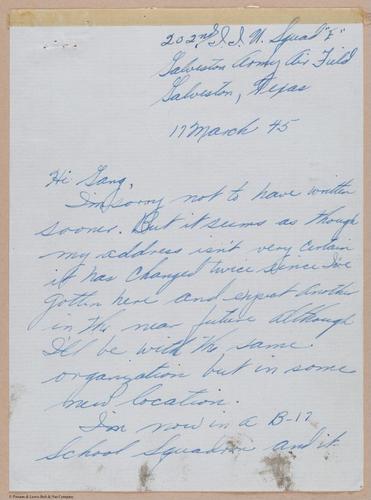 202nd I. I. U. Squad "F"
Galveston Army Air Field
Galveston, Texas
17 March 45
Hi Gang,
I'm sorry not to have written
sooner. But it seems as though
my address isn't very certain
it has changed twice since I've
gotten here and expect another
in the near future although
I'll be with the same
organization but in some
new location.
I'm now in a B-17
School Squadron and it